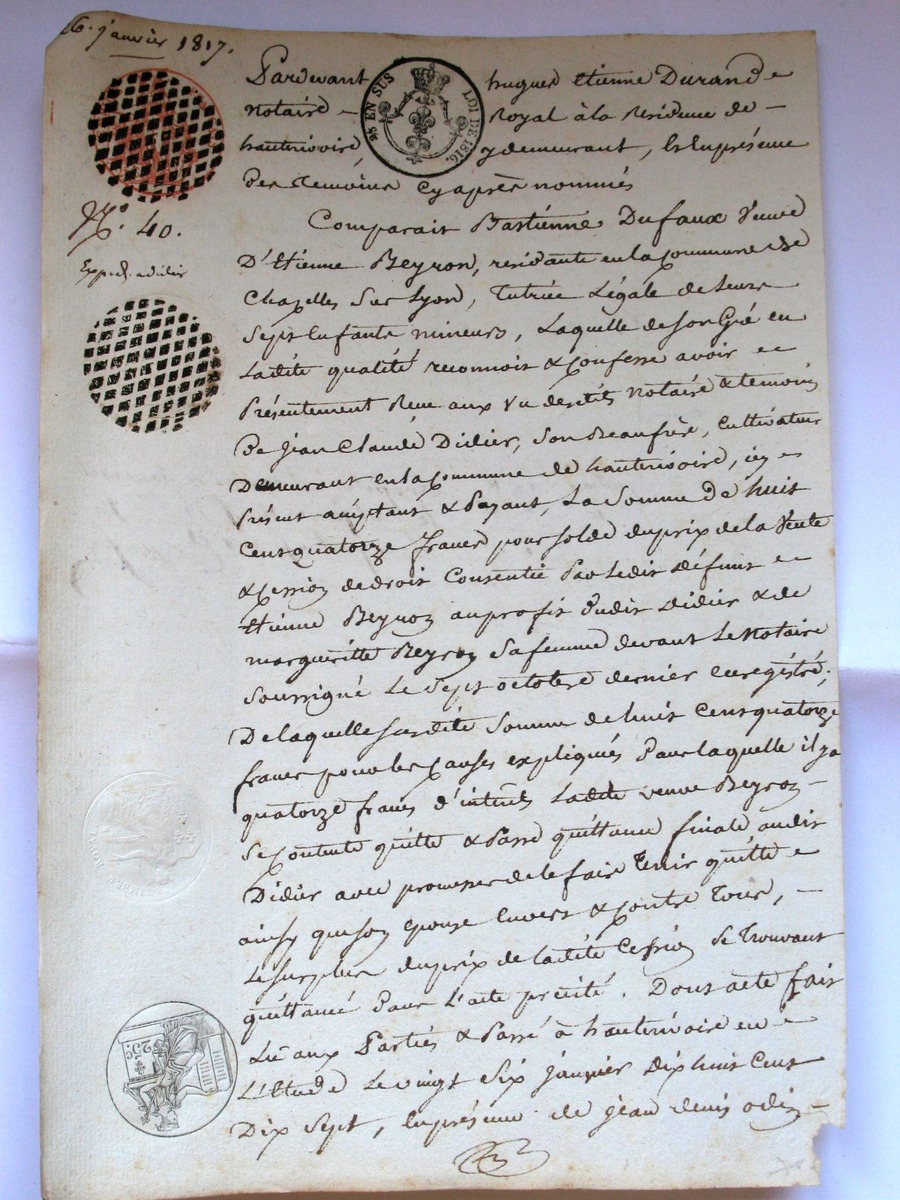 26. janvier 1817.
Pardevant hugues Etienne Durand
notaire – Royal à la Résidence de –
hauterivoire, y demeurant, & En présence
Des temoins Cy après nommés
25 EN SUS
LOI DE 1816.
N.º 40.
Exp. d. a didier
Comparait Bastienne Dufaux Veuve
D'Etienne Beyron, residante en la Commune de
Chazelles Sur Lyon, Tutrice Légale de Leurs
Sept Enfants mineurs, Laquelle de Son Gré en
Ladite qualité reconnoit & Confesse avoir
Présentement Reçu aux Vu desdits notaire & temoins
De jean Claude Didier, Son Beaufrère, Cultivateur
Demeurant en la Commune de hauterivoire, icy
Présent acceptant & Payant, La Somme de huit
Cent quatorze francs pour solde du prix de la Vente
& Cession de droit Consentie Par Ledit Défunt
Etienne Beyron au profit Dudit Didier & de
marguerite Beyron Sa femme devant Le Notaire
Soussigné Le Sept octobre dernier enregistré;
De laquelle Susdite Somme de huit Cent quatorze
francs pour les Causes expliquées Dans laquelle il y a
quatorze francs d'interets Ladite veuve Beyron –
Se Contente quitte & Passe quittance finale audit
Didier avec promesse de le faire Tenir quitte
ainsy que son epouse Envers & Contre Tous, –
Le Surplus du prix de ladite Cession Se Trouvant
quittancé Par L'acte précité. Dont acte fait
Lu aux Parties & Passé à hauterivoire en
L'Etude Le vingt Six janvier Dix huit Cent
Dix Sept, En présence de jean denis odin –
TIMBRE ROYAL
TIMBRE ROYAL
25 c.